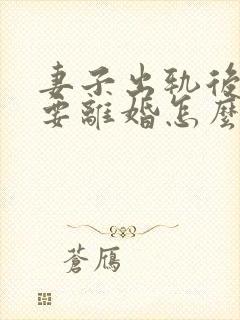 妻子出軌後
要離婚怎麼
蒼鴈